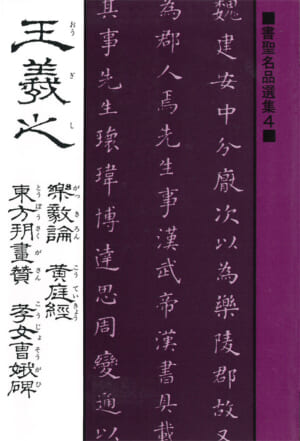 ■書聖名品選集4■
魏建安中分厭次以為樂陵郡故又
為郡人焉先生事漢武帝漢書具載
其事先生瓌瑋博達思周變通以
おう ぎ し
王羲之
がっ き ろん こう てい きょう
樂毅論 黄庭經
とう ぼう さく が さん こう じょ そう が ひ
東方朔畫賛 孝女曹娥碑